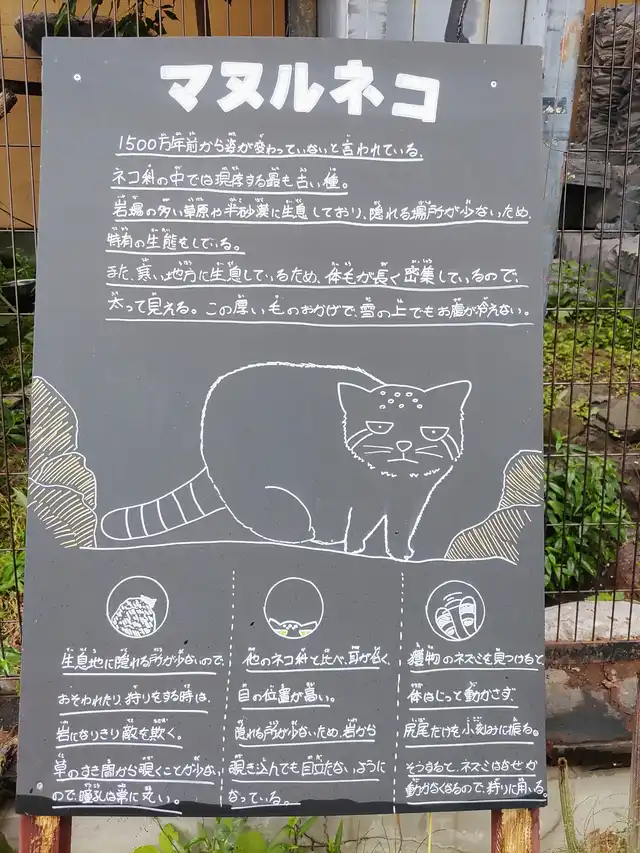 マヌルネコ
1500万年前から姿が変わっていないと言われている。
ネコ科の中では現存する最も古い種。
岩場の多い草原や半砂漠に生息しており、隠れる場所が少ないため、
特有の生態をしている。
また、寒い地方に生息しているため、体毛が長く密集しているので、
太って見える。この厚い毛のおかげで、雪の上でもお腹が冷えない。
生息地に隠れる所が少ないので、
おそわれたり、狩りをする時は、
岩になりきり敵を欺く。
草のすき間から覗くことが少ない
ので、瞳孔は常に丸い。
他のネコ科と比べ、耳が低く、
目の位置が高い。
隠れる所が少ないため、岩から
覗き込んでも目立たないように
なっている。
獲物のネズミを見つけると、
体はじっと動かさず、
尻尾だけを小刻みに振る。
そうすると、ネズミはなぜか
動かなくなるので、狩りに用いる。